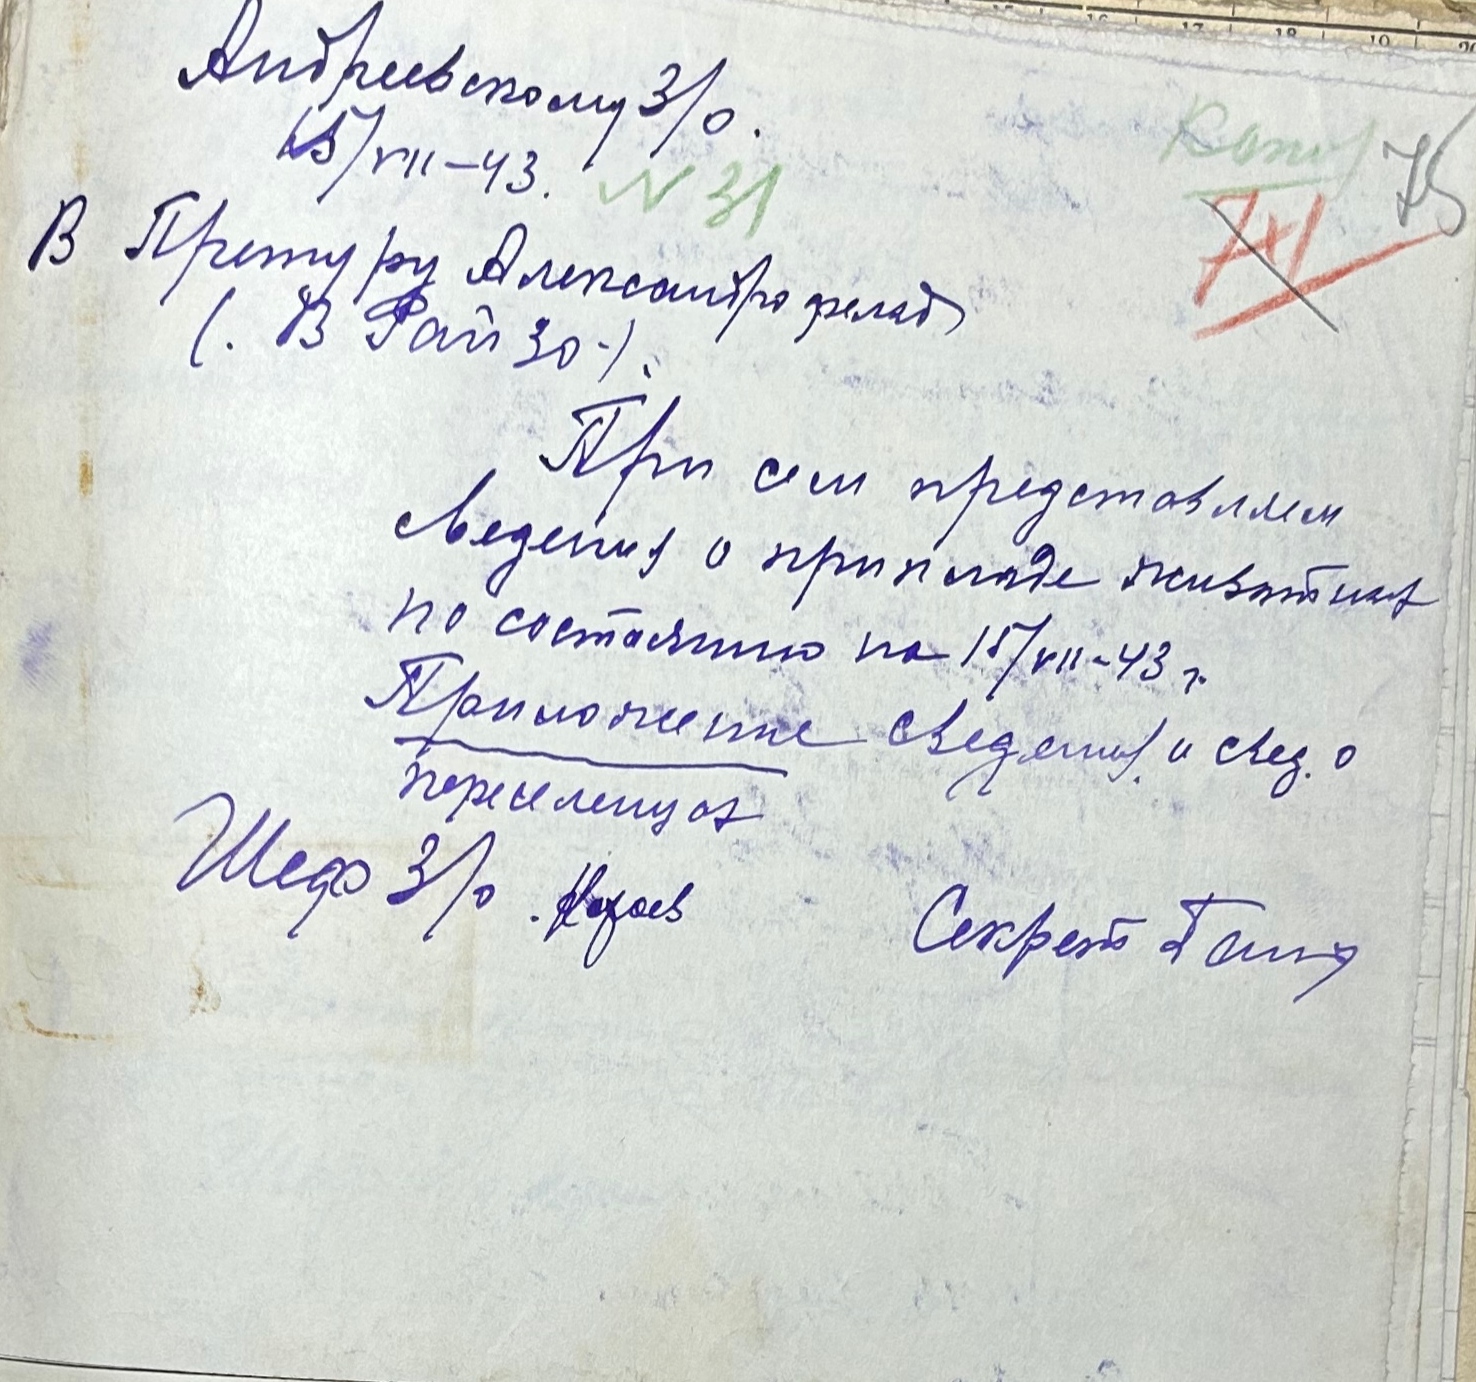 Андреевскому З/о.
15/VII-43. N 31
75
В Претуру Александрофельд
(. В Райзо.).
При сем представляем
сведения о приплоде животных
по состоянию на 15/VII-43 г.
Приложение сведения и свед. о
переселенцах
Шеф З/о.
Секрет